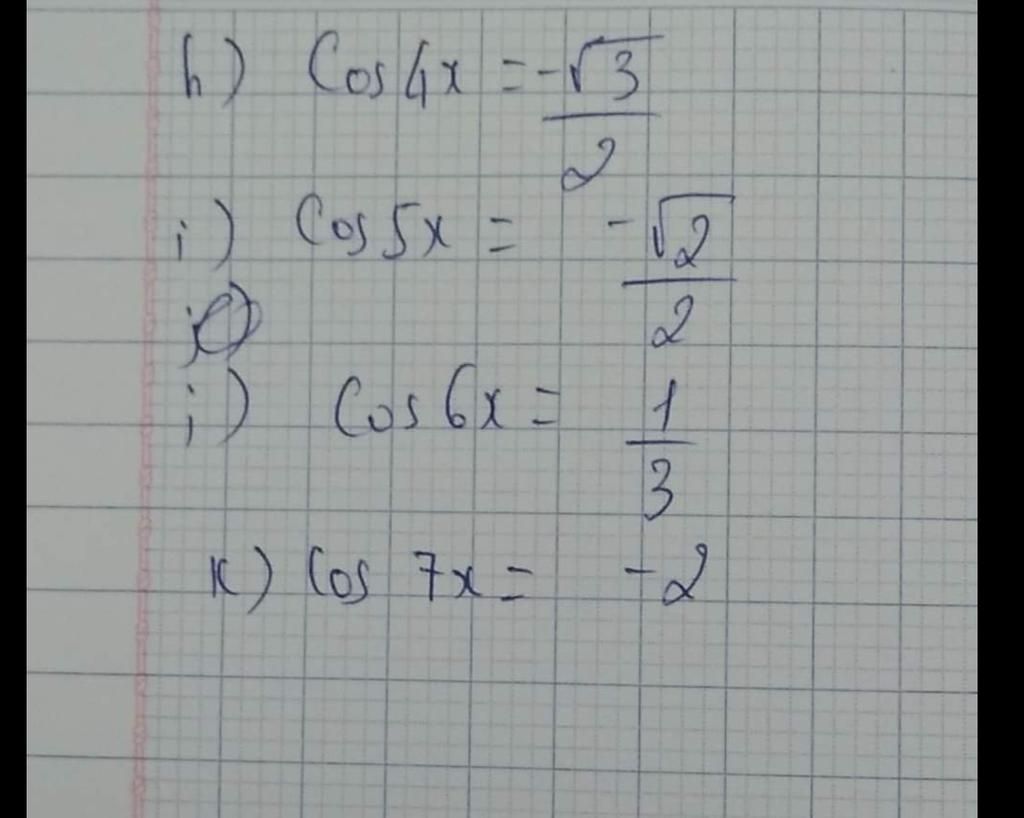 h) Cos 4x = -√3/2
i) Cos 5x = -√2/2
j)
i) Cos 6x = 1/3
K) Cos 7x = -2